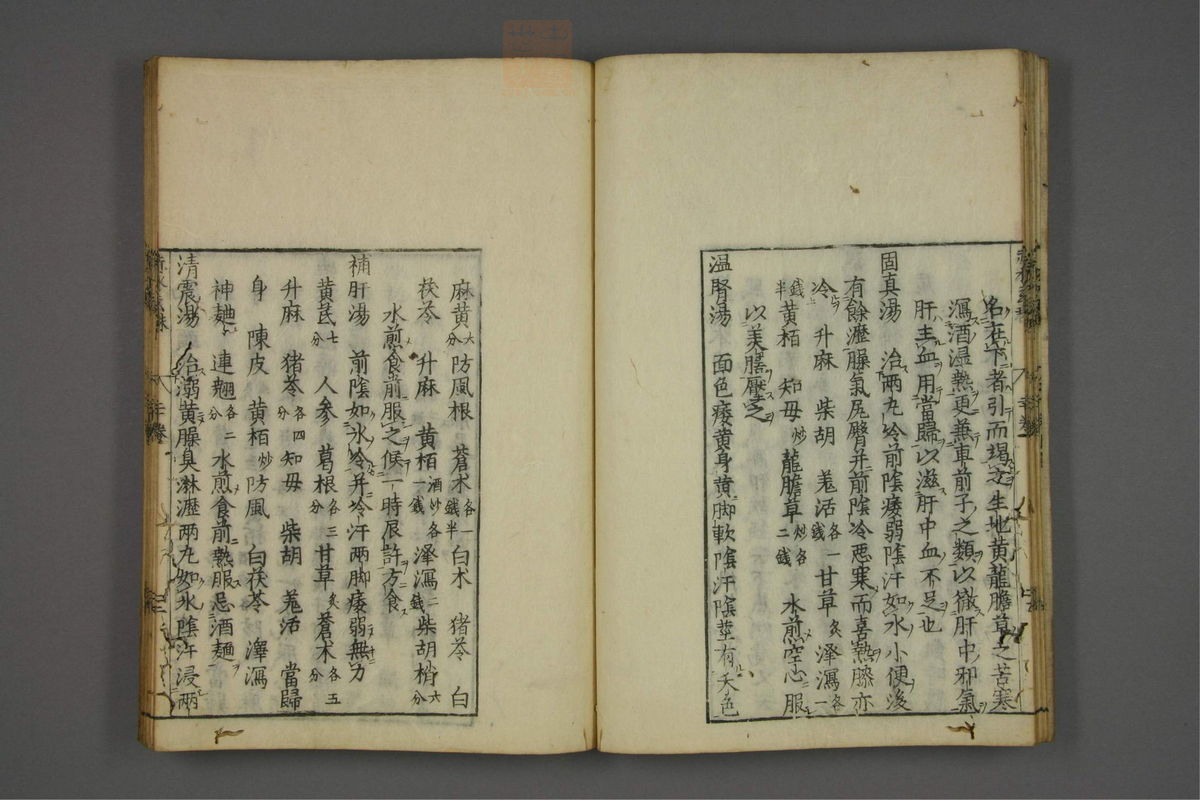 名在下者引而竭之生地黃龍膽草之苦寒
瀉酒濕熱更兼車前子之類以徹肝中邪氣
肝主血用當歸以滋肝中血不足也
固真湯　治兩丸冷前陰痿弱陰汗如水小便後
有餘瀝臊氣尻臀并前陰冷惡寒而喜熱膝亦
冷　升麻　柴胡　羗活各一錢　甘草炙　澤瀉各一
錢半　黃栢　知毋炒　龍膽草炒各二錢　水煎空心服
以美膳壓之
温腎湯　面色痿黃身黃脚軟陰汗陰莖有夭色
麻黃六分　防風根　蒼朮各一錢半　白朮　猪苓　白
茯苓　升麻　黃栢酒炒各一錢　澤瀉二錢　柴胡梢六分
水煎食前服之候一時辰許方食
補肝湯　前陰如冰冷并冷汗兩脚痿弱無力
黃芪七分　人參　葛根各三分　甘草炙　蒼朮各五分
升麻　猪苓各四分　知毋　柴胡　羗活　當歸
身　陳皮　黃栢炒　防風　白茯苓　澤瀉
神麯　連翹各二分　水煎食前熱服忌酒麵
清震湯　治溺黃臊臭淋瀝兩丸如氷陰汗浸兩